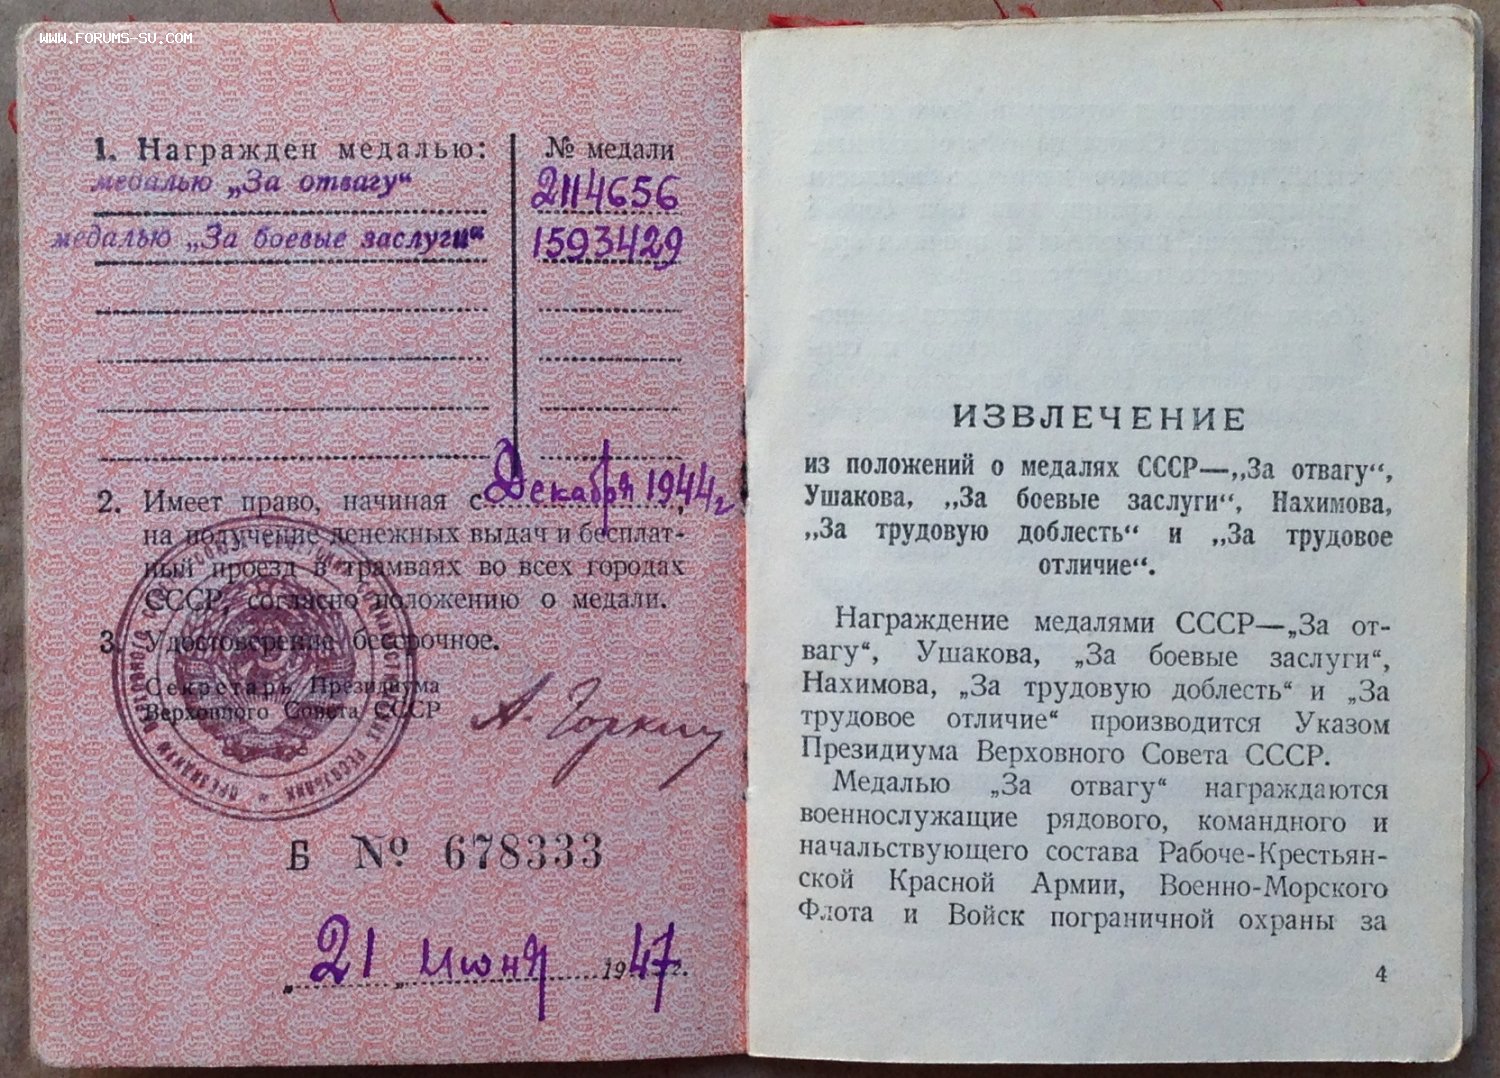 WWW.FORUMS-SU.COM
1. Награжден медалью: № медали
медалью „За отвагу“ 2114656
медалью „За боевые заслуги“ 1593429
2. Имеет право, начиная с Декабря 1944 г.,
на получение денежных выдач и бесплат-
ный проезд в трамваях во всех городах
СССР, согласно положению о медали.
3. Удостоверение бессрочное.
Секретарь Президиума
Верховного Совета СССР
А. Горкин
Б № 678333
21 июня 1947 г.
ИЗВЛЕЧЕНИЕ
из положений о медалях СССР—„За отвагу“,
Ушакова, „За боевые заслуги“, Нахимова,
„За трудовую доблесть“ и „За трудовое
отличие“.
Награждение медалями СССР—„За от-
вагу“, Ушакова, „За боевые заслуги“,
Нахимова, „За трудовую доблесть“ и „За
трудовое отличие“ производится Указом
Президиума Верховного Совета СССР.
Медалью „За отвагу“ награждаются
военнослужащие рядового, командного и
начальствующего состава Рабоче-Крестьян-
ской Красной Армии, Военно-Морского
Флота и Войск пограничной охраны за
4